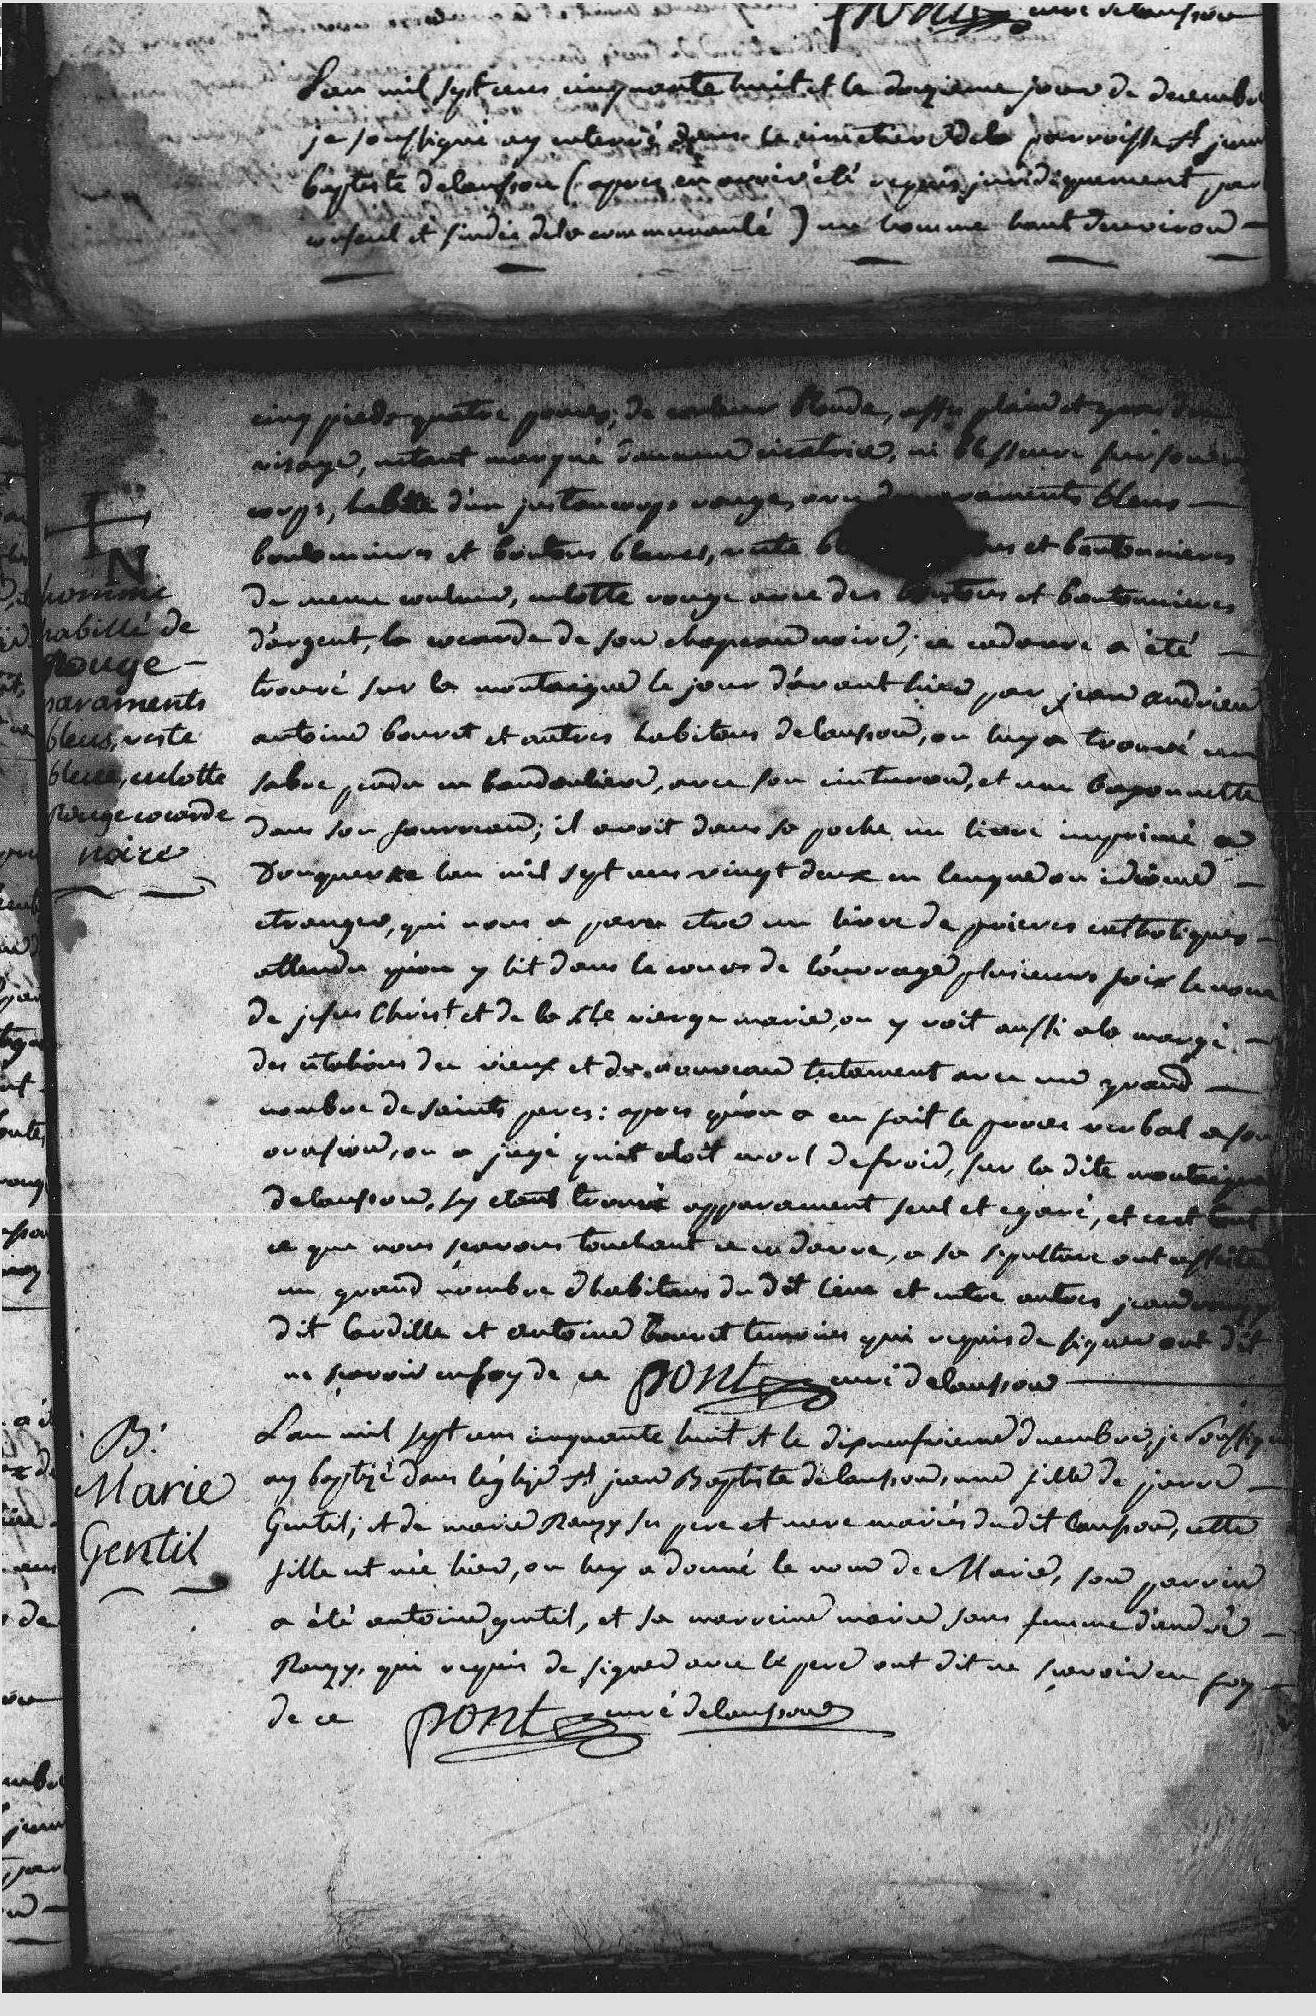 pont curé delanson
L'an mil sept cens cinquante huit et le douzieme jour de decembre
je soussigné ay enterré dans le cimetiere dela parroisse St jean
baptiste delanson (apres en avoir été requis juridiquement par
consul et sindic dela communauté) un homme haut denviron
cinq pieds quatre pouces, de couleur blonde, assez plain et gras du
visage, netant marqué daucune cicatrice, ni blessure sur son
corps, habillé d'un justaucorps rouge, avec des paraments bleus
boutonnieres et boutons bleues, veste et boutonnieres
de meme couleur, culotte rouge avec des boutons et boutonnieres
d'argent, la cocarde de son chapeau noire; ce cadavre a été
trouvé sur la montaigne le jour d'avant hier par jean andrieu
antoine bouret et autres habitans delanson, on luy a trouvé un
sabre pendu en bandouliere, avec son ceinturon, et une bayonnette
dans son fourreau; il avoit dans sa poche un livre imprimé a
Dunquerke lan mil sept cens vingt deux en langue ou idiome
etranger, qui nous a paru etre un livre de prieres catholiques
attendu qu'on y lit dans le cours de l'ouvrage plusieurs fois le nom
de jesus Christ et de la Ste vierge marie, on y voit aussi a la marge
des citations du vieux et du nouveau testament avec un grand
nombre de saints peres: apres qu'on a eu fait le procès verbal a son
occasion, on a jugé quil etoit mort de froid, sur la dite montaigne
delanson, sy etant trouvé apparament seul et egaré, et cest tout
ce que nous scavons touchant ce cadavre, a sa sepulture ont assisté
un grand nombre d'habitans du dit lieu et entre autres jean
dit Cardille et antoine bouret temoins qui requis de signer ont dit
ne scavoir en foy de ce pont curé delanson
N
homme
habillé de
Rouge
paraments
bleus, veste
bleue, culotte
Rouge cocarde
noire
L'an mil sept cens cinquante huit et le dixneufvieme decembre, je soussigné
ay baptizé dans l'églize St jean Baptiste delanson, une fille de pierre
Gentil, et de marie Rouzy ses pere et mere mariés du dit lanson, cette
fille est née hier, on luy a donné le nom de Marie, son parrin
a été antoine gentil, et sa marrine marie sans femme d'andré
Rouzy, qui requis de signer avec le pere ont dit ne scavoir en foy
de ce pont curé delanson
B.
Marie
Gentil